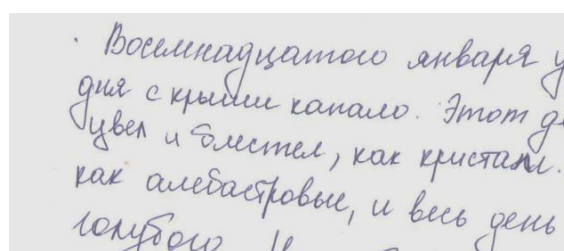 Восемнадцатого января
дня с крыши капало. Этот
цвел и блестел, как кристалл.
как алебастровые, и весь день
голубого.